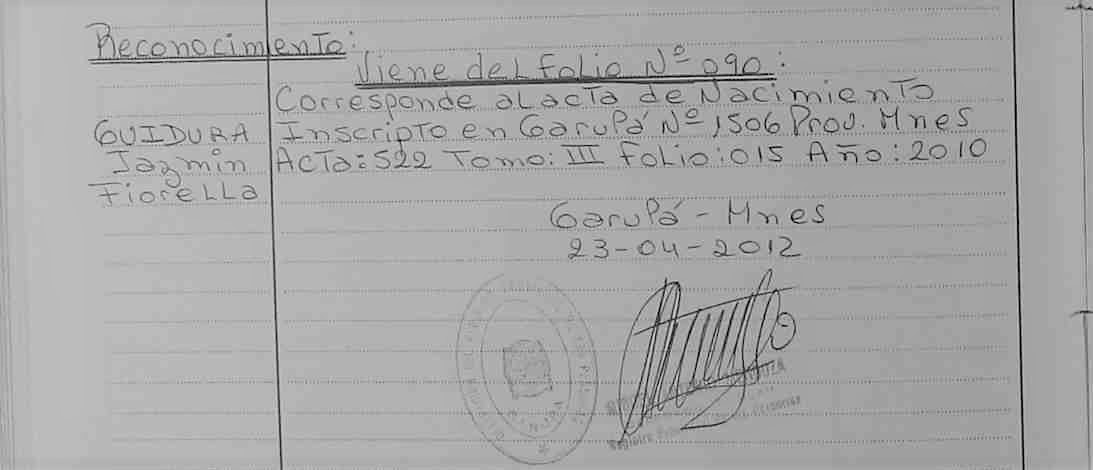 Reconocimiento:
Viene del folio Nº 090:
Corresponde al acta de Nacimiento
GUIDURA
Jazmin
Fiorella
Inscripto en Garupá Nº 1506 Prov. Mnes
Acta: 522 Tomo: III folio: 015 Año: 2010
Garupá - Mnes
23-04-2012
Registro